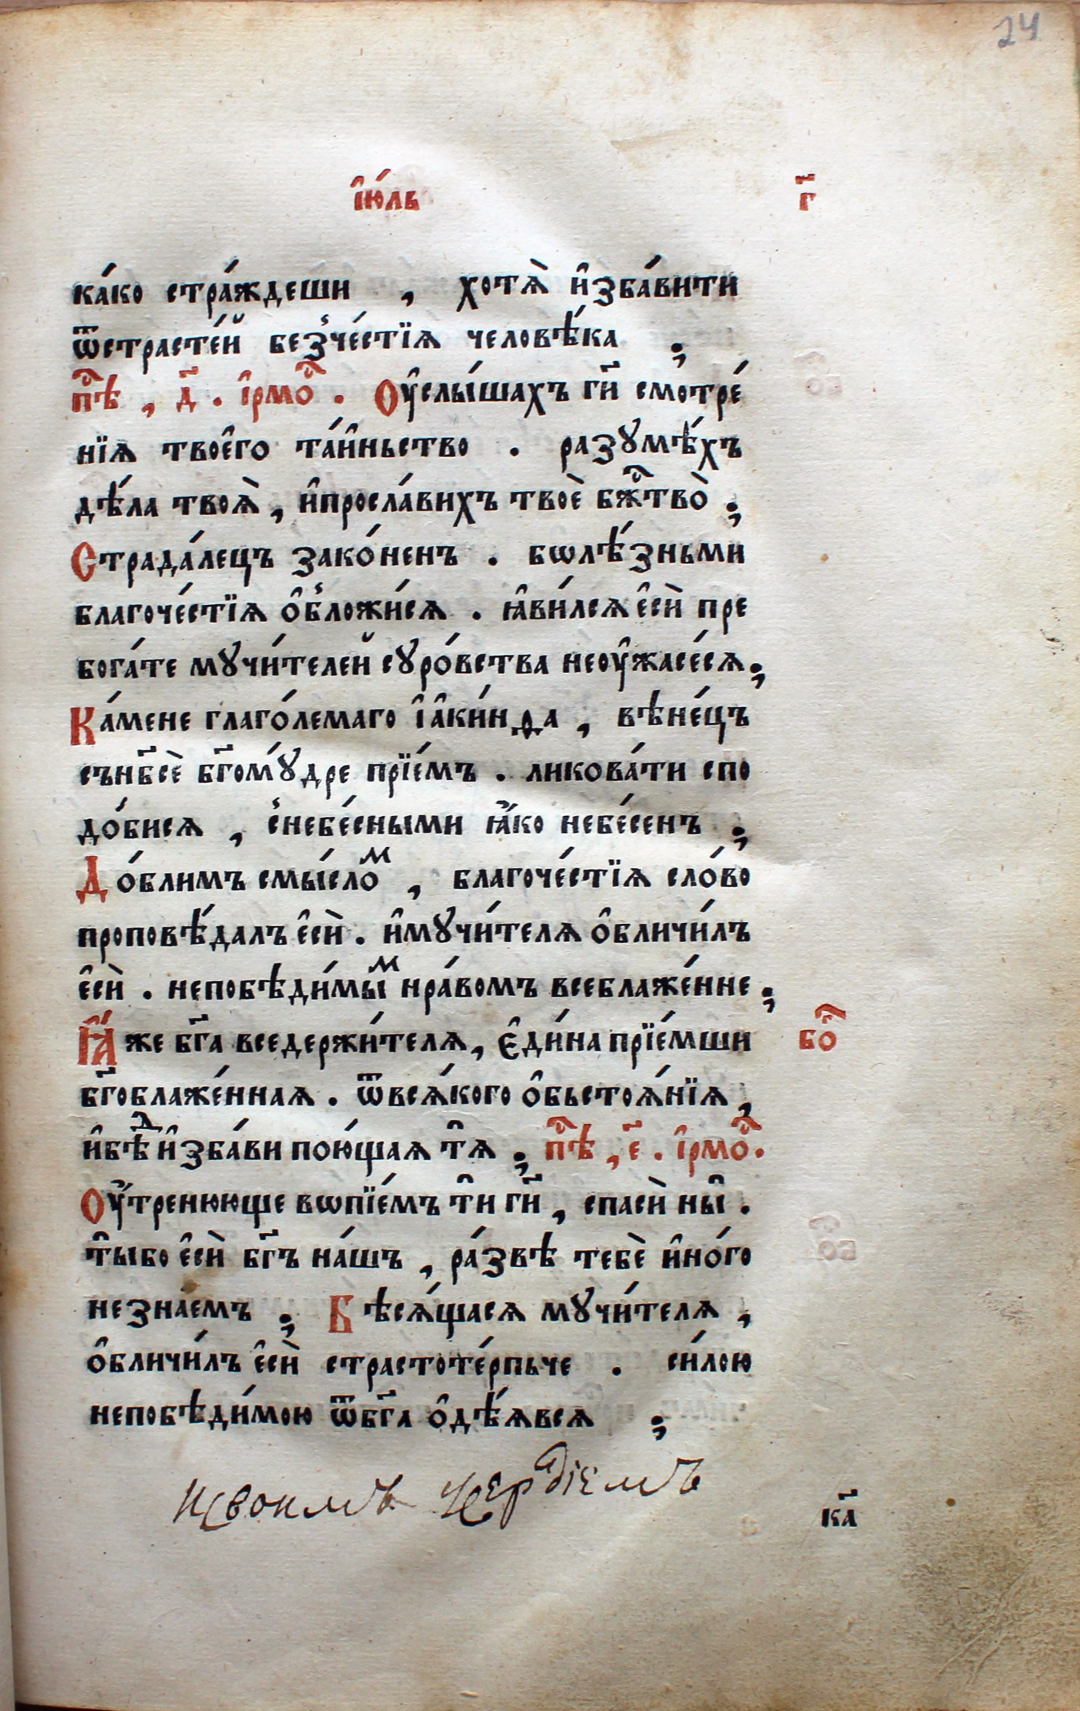 24
і҆ю́ль г҃
ка́ко стра́ждеши , хотѧ̀ и҆зба́вити
ѿстрасте́й безче́стїѧ человѣ́ка ;
пⷭ҇ѣ , д҃ . і҆рмоⷭ҇ . Оу҆слы́шахъ гн҃ смотре́
нїѧ твоегѡ̀ та́йньство . разумѣ́хъ
дѣ́ла твоѧ̀ , и҆просла́вихъ твоѐ бжⷭ҇тво̀ ;
Страда́лецъ зако́ненъ . бѡлѣ́зньми
благоче́стїѧ ѻ҆бложи́сѧ . ꙗ҆ви́лсѧ є҆сѝ пре
бога́те мучи́телей суро́вства неоу҆жасе́сѧ ;
Ка́мене глаго́лемаго і҆аки́нѳа , вѣне́цъ
сънб҃сѐ бг҃ому́дре прїе́мъ . ликова́ти спо
до́бисѧ , снебе́сными ꙗ҆́ко небе́сенъ ;
До́блимъ смы́слоⷨ , благоче́стїѧ сло́во
проповѣ́далъ є҆сѝ . и҆мучи́телѧ ѻ҆бличи́лъ
є҆сѝ . непобѣди́мыⷨ нра́вомъ всеблаже́нне ;
Ꙗ҆́же бг҃а вседержи́телѧ , є҆ди́на прїе́мши боⷢ҇
бг҃облаже́ннаѧ . ѿвсѧ́кого ѻ҆бьстоѧ́нїѧ ,
и҆бѣⷣ и҆зба́ви пою́щаѧ тѧ̀ ; пⷭ҇ѣ , є҃ . і҆рмоⷭ҇ .
Оу҆́тренююще вѡпїе́мъ тѝ гн҃ , спасѝ ны̀ .
ты́бо є҆сѝ бг҃ъ на́шъ , ра́звѣ тебѐ и҆но́го
незна́емъ ; Бѣсѧ́щасѧ мучи́телѧ ,
ѻ҆бличи́лъ є҆сѝ страстоте́рпьче . си́лою
непобѣди́мою ѿбг҃а ѻ҆дѣ́ѧвсѧ ;
исвоимъ
ка҃